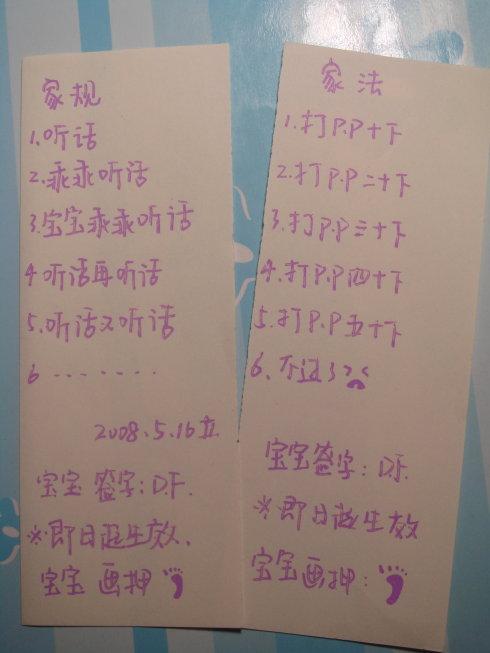 家规
1.听话
2.乖乖听话
3.宝宝乖乖听话
4.听话再听话
5.听话又听话
6.......
2008.5.16立
宝宝签字:D.F.
※即日起生效.
宝宝画押
家法
1.打P.P十下
2.打P.P二十下
3.打P.P三十下
4.打P.P四十下
5.打P.P五十下
6.不过3
宝宝签字:D.F.
※即日起生效
宝宝画押: